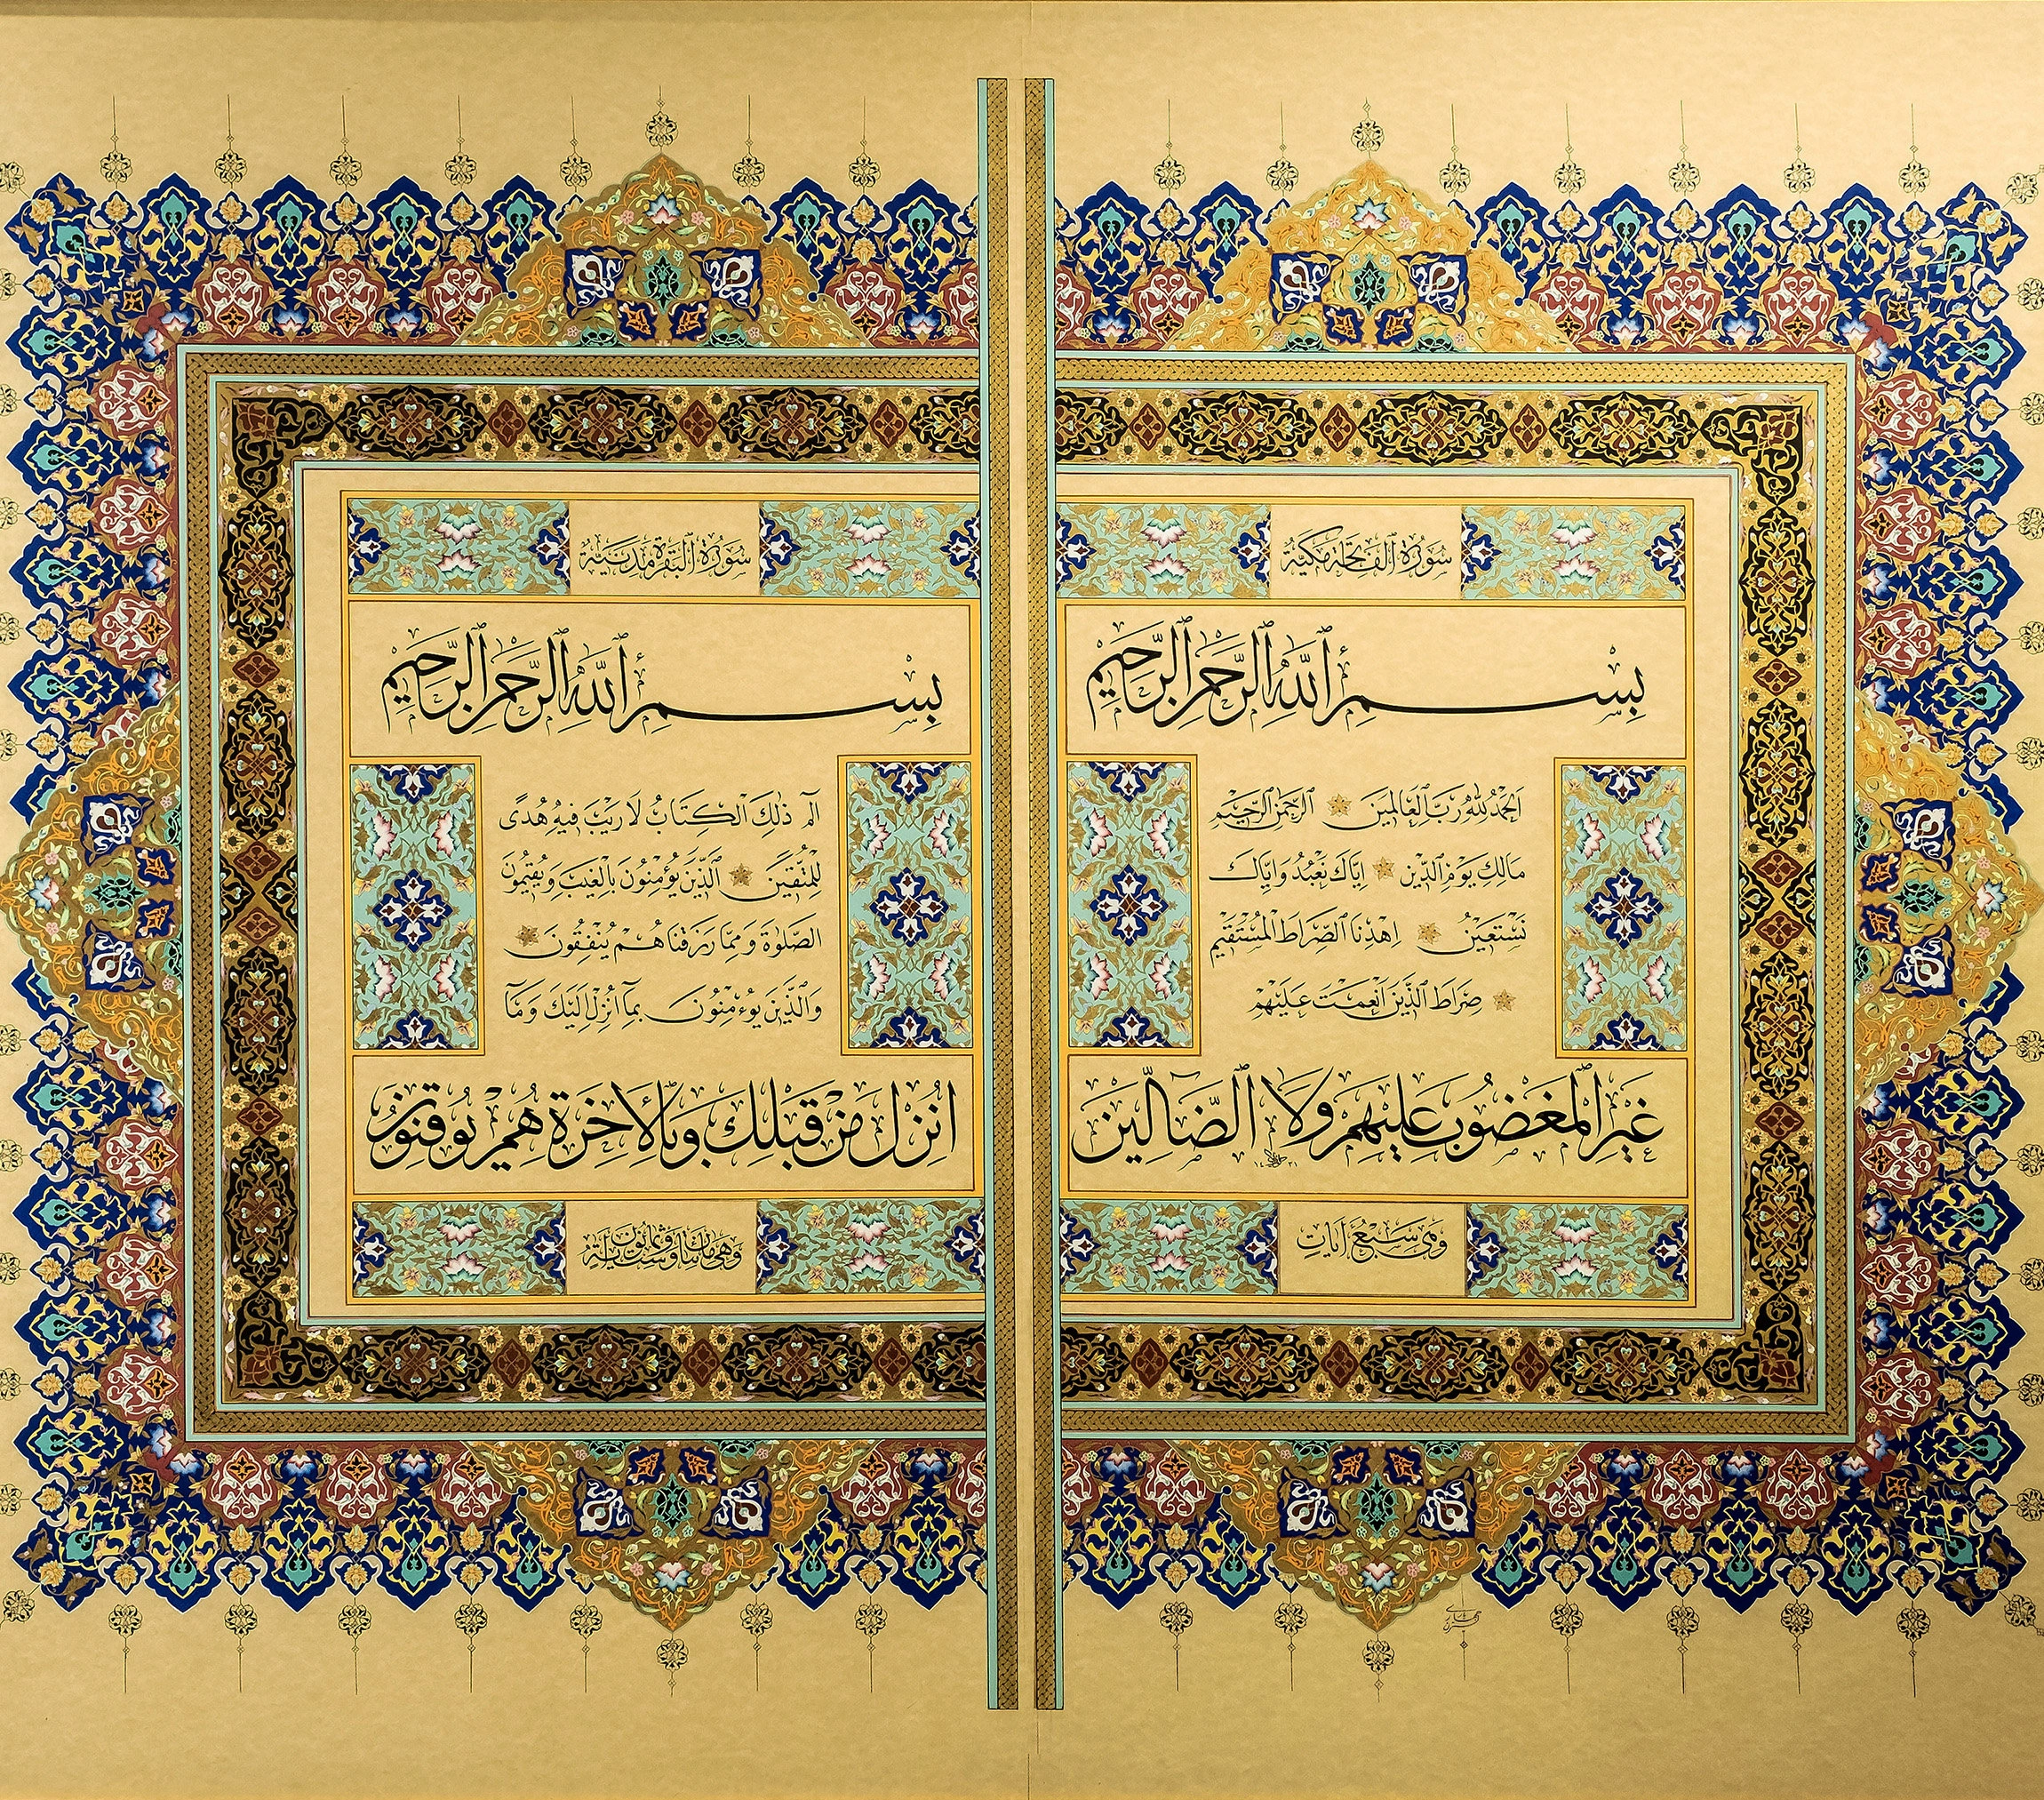 سُورَةُ الفَاتِحَة مَكِّيَّةٌ
بِسْمِ ٱللَّهِ ٱلرَّحْمَٰنِ ٱلرَّحِيمِ
اَلْحَمْدُ لِلّٰهِ رَبِّ ٱلْعَالَمِينَ ۝ ٱلرَّحْمٰنِ ٱلرَّحِيمِ
مَالِكِ يَوْمِ ٱلدِّينِ ۝ اِيَّاكَ نَعْبُدُ وَاِيَّاكَ
نَسْتَعِينُ ۝ اِهْدِنَا ٱلصِّرَاطَ ٱلْمُسْتَقِيمَ
۝ صِرَاطَ ٱلَّذِينَ اَنْعَمْتَ عَلَيْهِمْ
غَيْرِ ٱلْمَغْضُوبِ عَلَيْهِمْ وَلَا ٱلضَّالِّينَ
١٤٣١
وَهِيَ سَبْعُ آيَاتٍ
سُورَةُ ٱلْبَقَرَةِ مَدَنِيَّةٌ
بِسْمِ ٱللَّهِ ٱلرَّحْمَٰنِ ٱلرَّحِيمِ
الٓمٓ ذٰلِكَ ٱلْكِتَابُ لَا رَيْبَ فِيهِ هُدًى
لِلْمُتَّقِينَ ۝ ٱلَّذِينَ يُؤْمِنُونَ بِالْغَيْبِ وَيُقِيمُونَ
الصَّلٰوةَ وَمِمَّا رَزَقْنَاهُمْ يُنْفِقُونَ ۝
وَالَّذِينَ يُؤْمِنُونَ بِمَآ اُنْزِلَ اِلَيْكَ وَمَآ
اُنْزِلَ مِنْ قَبْلِكَ وَبِالْاٰخِرَةِ هُمْ يُوقِنُونَ
وَهِيَ مِائَتَانِ وَسِتٌّ وَثَمَانُونَ آيَةً